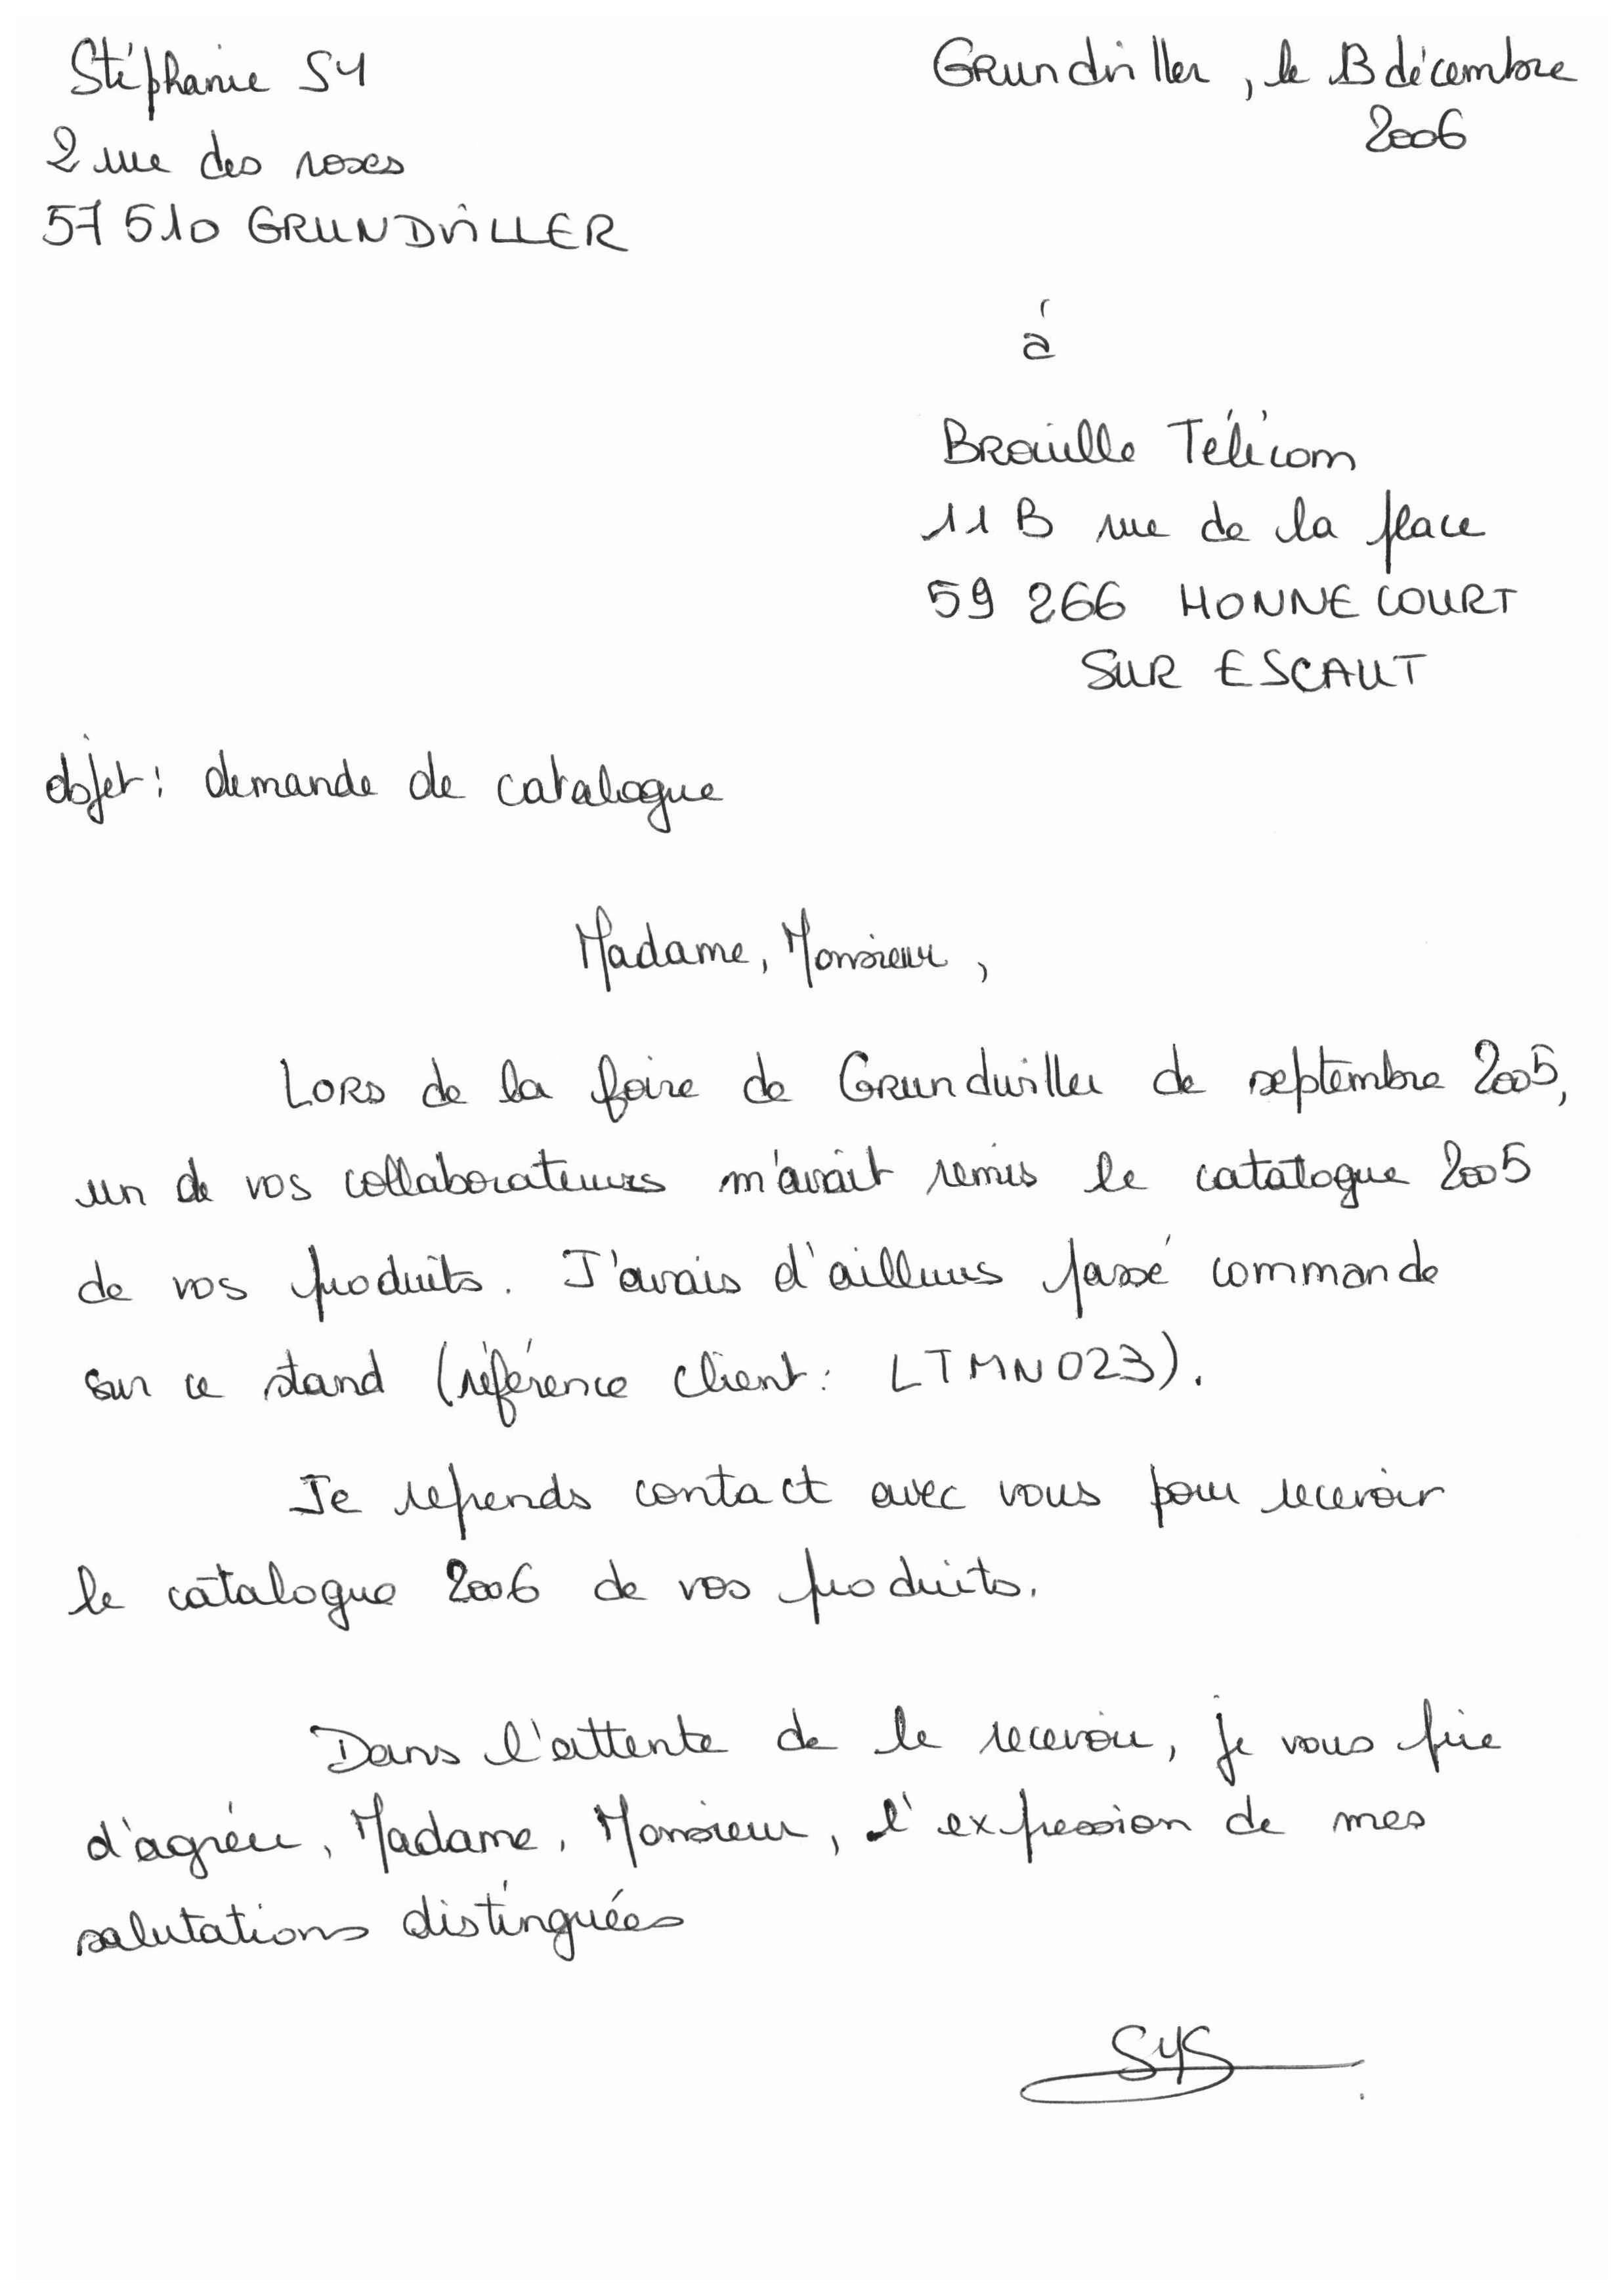 Stéphanie SY
2 rue des roses
57 510 GRUNDVILLER
Grundviller, le 13 décembre
2006
à
Brouille Télécom
11 B rue de la place
59 266 HONNECOURT
SUR ESCAUT
objet : demande de catalogue
Madame, Monsieur,
Lors de la foire de Grundwiller de septembre 2005,
un de vos collaborateurs m'avait remis le catalogue 2005
de vos produits. J'avais d'ailleurs passé commande
sur ce stand (référence client : LTMN023).
Je reprends contact avec vous pour recevoir
le catalogue 2006 de vos produits.
Dans l'attente de le recevoir, je vous prie
d'agréer, Madame, Monsieur, l'expression de mes
salutations distinguées
SyS